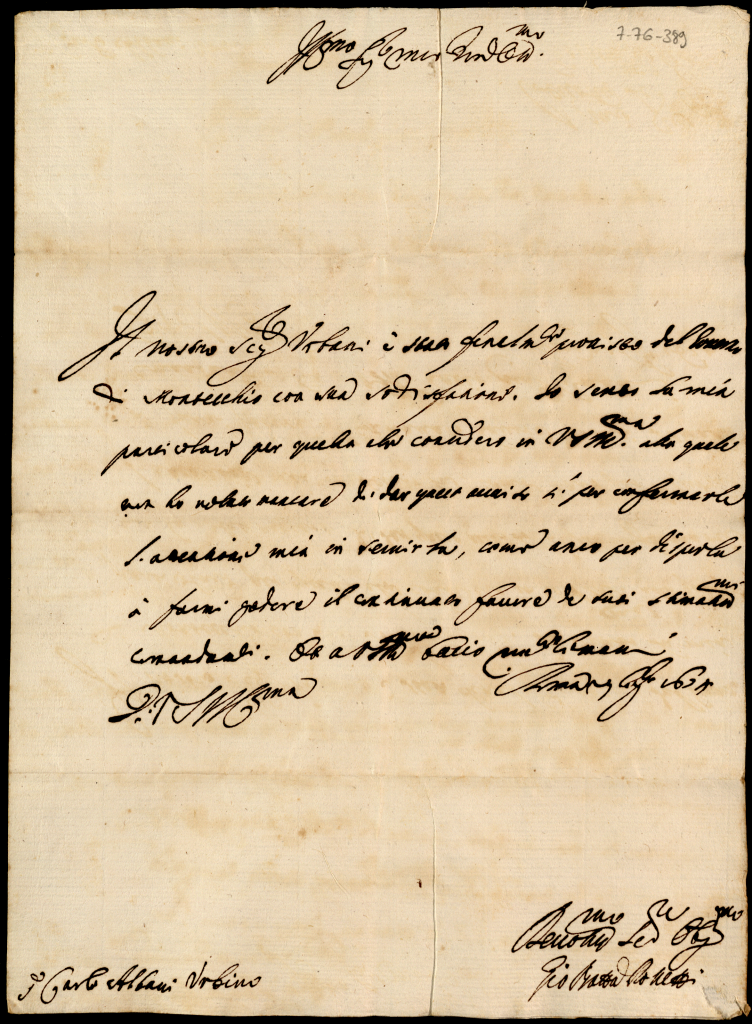 7-76-389
Ill.mo Sig.r mio
Il nostro Sig.r Urbani è stato finalm.te provisto del Governo
di Montecchio con sua sodisfatione. Io sento la mia
particolare per quella che considero in V.S. Ill.ma alla quale
non ho voluto mancare di dar questo aviso sì per confermarle
l'attentione mia in servirla, come anco per disporla
à farmi godere il continuato favore de suoi stimatis.mi
comandi. Et a V.S. Ill.ma bacio le mani
Roma 9 1634
Di V.S. Ill.ma
Devotiss.mo Ser.re Oblig.mo
Gio Batta
S.r Carlo Albani Urbino